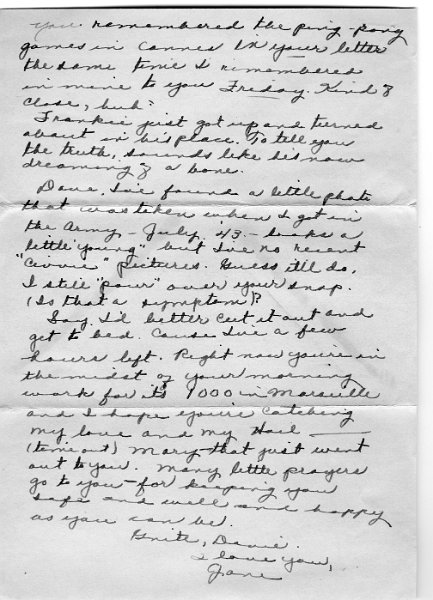 you remembered the ping-pong
games in Cannes in your letter
the same time I remembered
in mine to you Freday. Kind of
close, huh?
Frankie just got up and turned
about in his place. To tell you
the truth, sounds like he's now
dreaming of a bone.
Dave, I've found a little photo
that was taken when I got in
the Army - July, '43. - Looks a
little "young" but I've no recent
"civvie" pictures. Guess it'll do.
I still "pour" over your snap.
(Is that a symptom)?
Say, I'd better cut it out and
get to bed. Cause I've a few
hours left. Right now you're in
the midst of your morning
work for it's 1000 in Marseille
and I hope you're catching
my love and my Hail
(time out) Mary - that just went
out to you. Many little prayers
go to you - for keeping you
safe and well and happy
as you can be.
Gnite, Davie.
I love you,
Jane